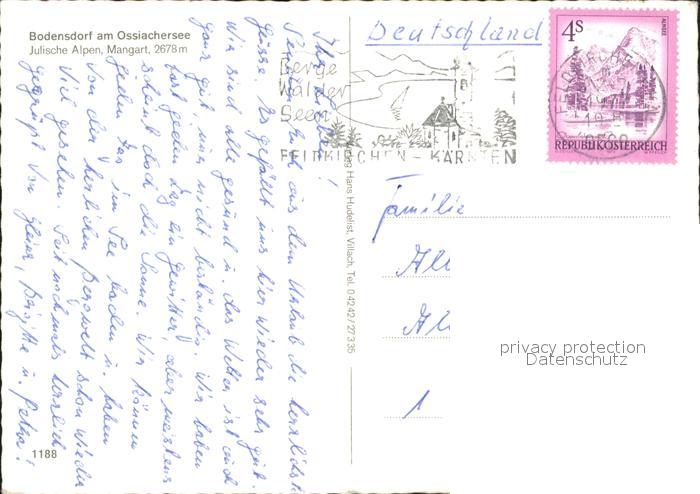 Bodensdorf am Ossiachersee
Julische Alpen, Mangart, 2678 m
Ihr Lieben!
Senden Euch aus dem Urlaub die herzlichsten
Grüsse. Es gefällt uns hier wieder sehr gut.
Wir sind alle gesund u. das Wetter ist auch
ganz gut, nur nicht beständig. Wir haben
fast jeden Tag ein Gewitter, aber meistens
scheint doch die Sonne. Wir können
jeden Tag im See baden u. haben
von der herrlichen Bergwelt schon wieder
viel gesehen. Seid nochmals herzlich
gegrüßt von Heinz, Brigitte u. Petra!
1188
Hans Hudelist, Villach, Tel. 0 42 42/27 3 35
Deutschland
Berge
Wälder
Seen
FELDKIRCHEN - KÄRNTEN
4S
ALMSEE
REPUBLIK ÖSTERREICH
Familie
Al
Al
1
privacy protection
Datenschutz